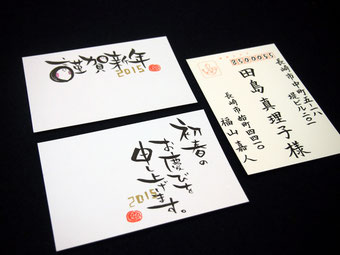 謹賀新年
2015
初春の
お慶びを
申し上げます。
2015
8500055
長崎市中町五-一八
堤ビル二〇一
田島真理子様
長崎市飽町四四〇
福山嘉人